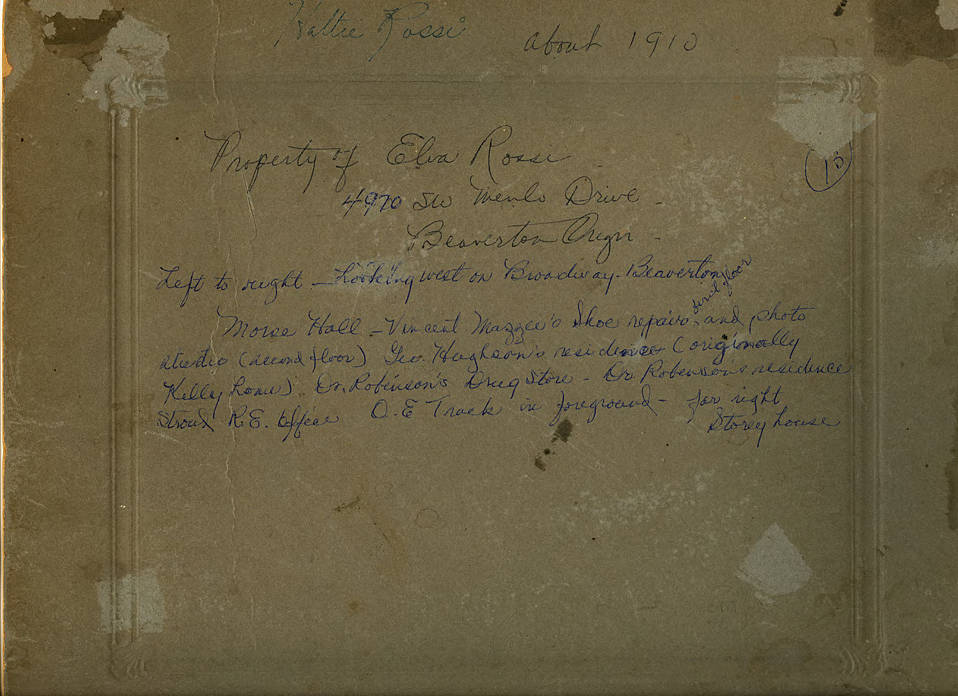 Hattie Rossi
about 1910
Property of Elva Rossi
(15)
4970 SW Menlo Drive -
Beaverton Oregn -
Left to right - Looking west on Broadway - Beaverton
first floor
Morse Hall - Vincent Shoe repairs and photo
studio (second floor) Geo. Hughson's residence (originally
Kelly home) Dr. Robinson's Drug Store - Dr Robinson's residence
Stroud R.E. Office O.E Track in foreground - far right
Storey house